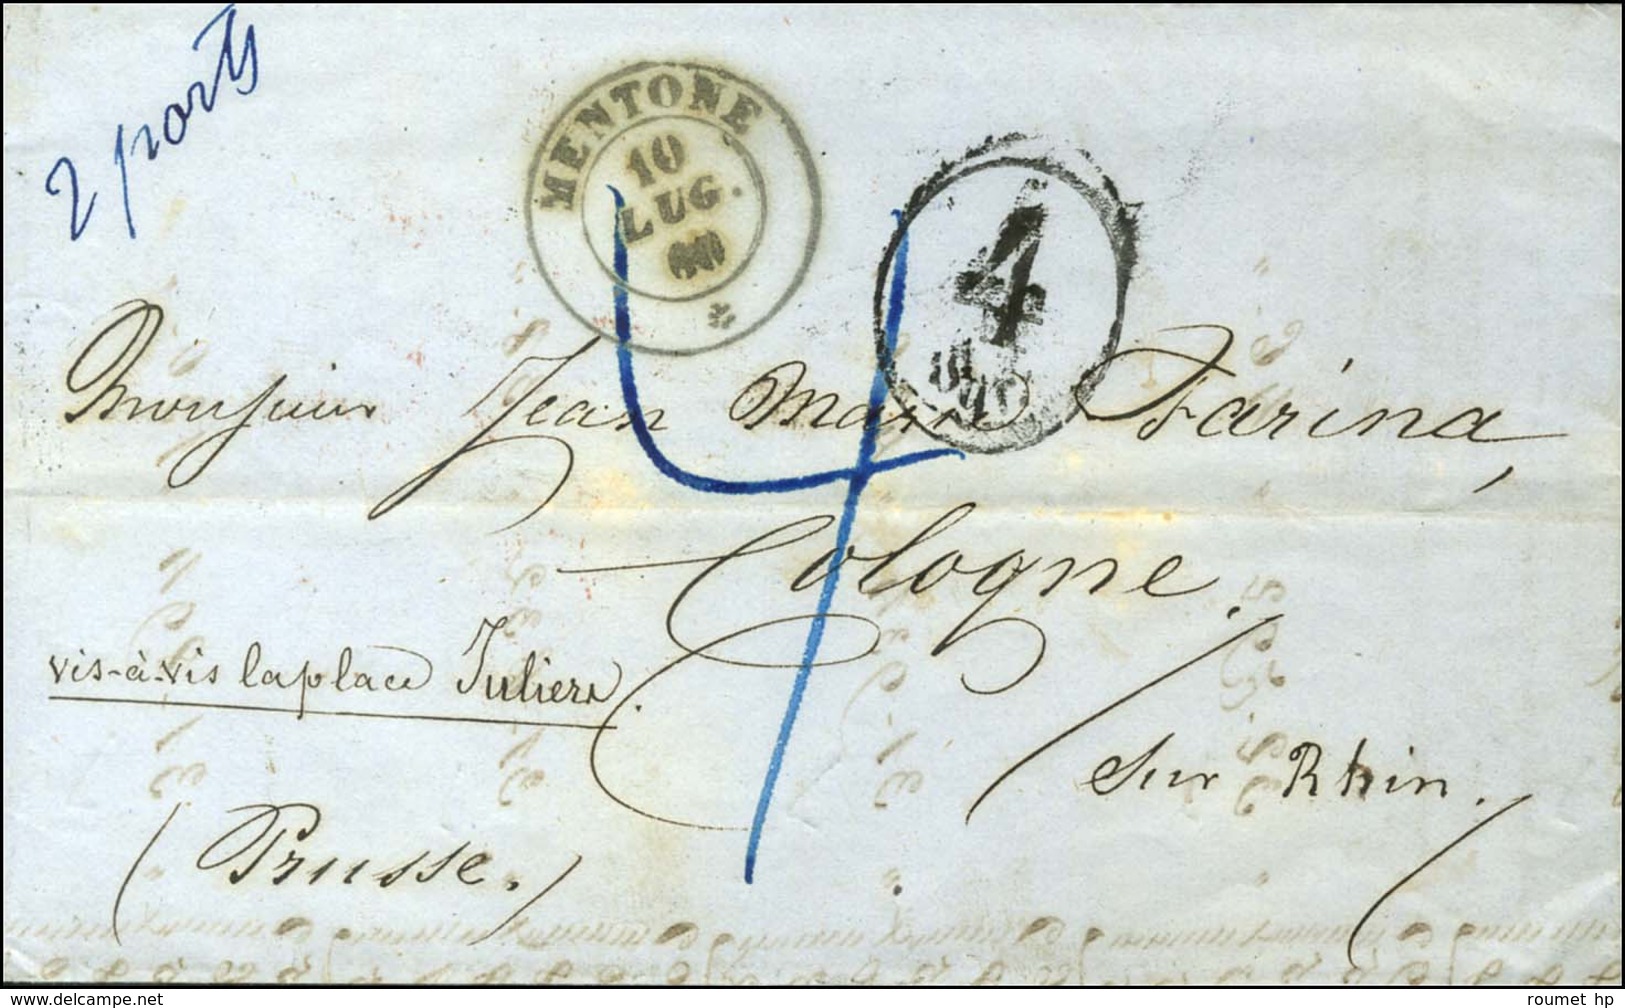 2 ports
MENTONE
10
LUG.
60
4
Monsieur Jean Marie Farina,
Cologne.
vis-à-vis la place Juliers.
sur Rhin.
(Prusse.)
4
delcampe.net
roumet hp